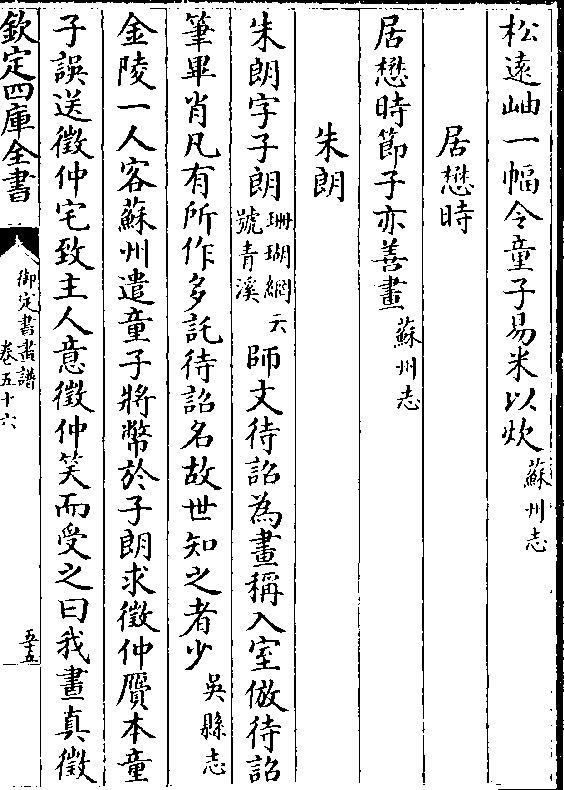 松遠岫一幅令童子易米以炊蘇州志
居懋時
居懋時節子亦善畫蘇州志
朱朗
朱朗字子朗珊瑚網云號青溪師文待詔為畫稱入室倣待詔
筆畢肖凡有所作多託待詔名故世知之者少吳縣志
金陵一人客蘇州遣童子將幣於子朗求徵仲贗本童
子誤送徵仲宅致主人意徵仲笑而受之曰我畫真徵
欽定四庫全書
御定書畫譜
卷五十六
五五